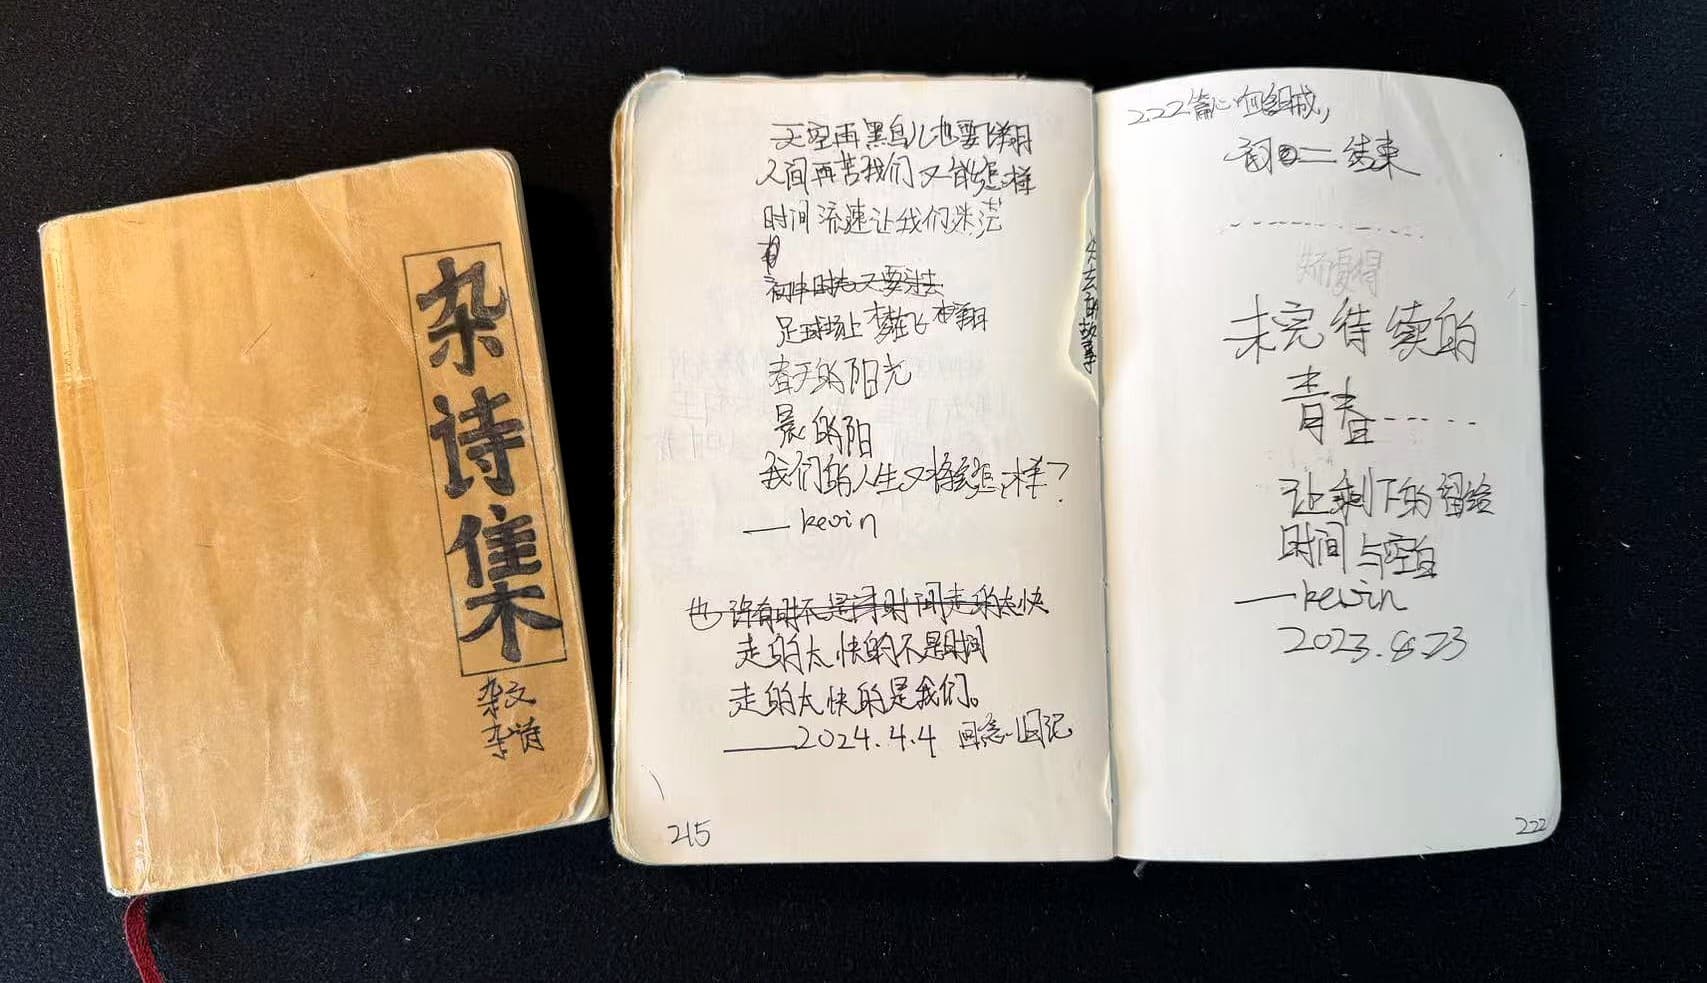 杂诗集
杂文
杂诗
天空再黑鸟儿也要飞翔
人间再苦我们又能怎样
时间流速让我们迷茫
初中时光又要过去
足球场上梦在飞翔
春天的阳光
晨的阳
我们的人生又将会怎样?
——kevin
也许有时不是时间走的太快
走的太快的不是时间
走的太快的是我们。
——2024.4.4 回念旧记
215
失去的故事
222篇心血组成,,
词二结束
失而复得
未完待续的
青春-----
让剩下的留给
时间与空白
——kevin
2023.8.23
222